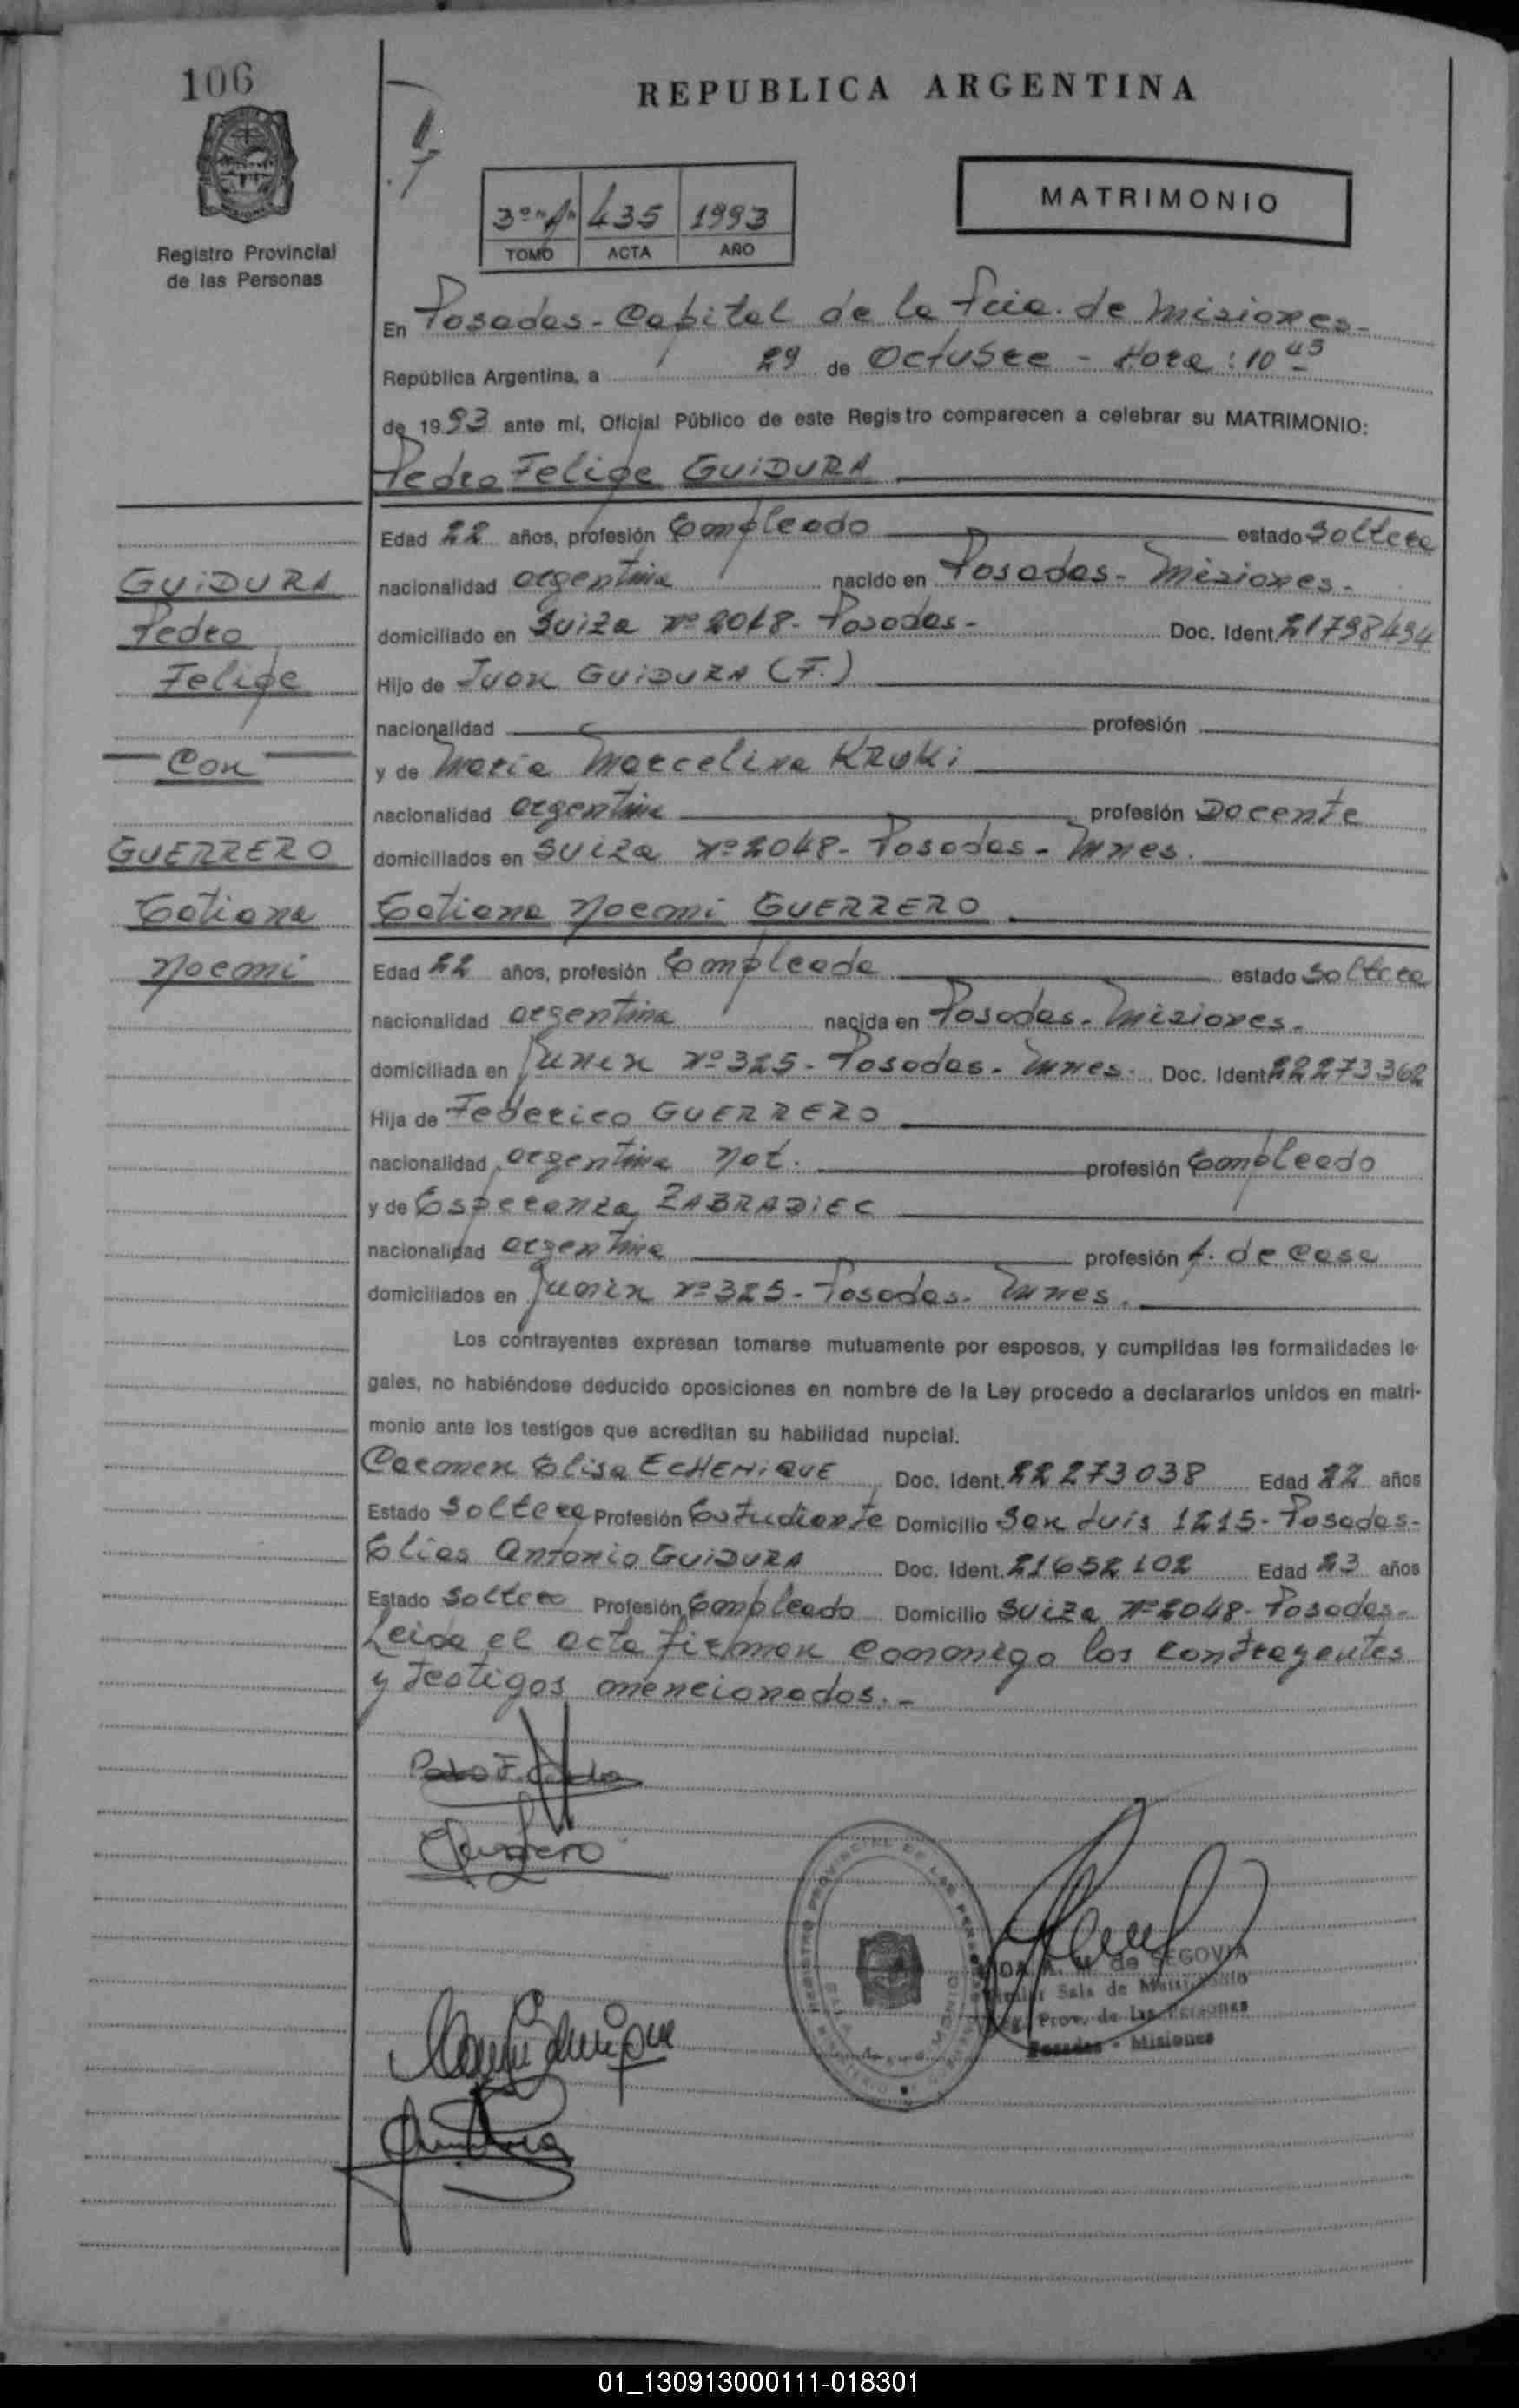 106
REPUBLICA ARGENTINA
MATRIMONIO
3º "A" 435 1993
TOMO ACTA AÑO
Registro Provincial
de las Personas
En Posadas - Capital de la Pcia. de Misiones -
República Argentina, a 29 de Octubre - Hora: 10 45
de 1993 ante mí, Oficial Público de este Registro comparecen a celebrar su MATRIMONIO:
Pedro Felipe GUIDURA
Edad 22 años, profesión Empleado estado Soltero
GUIDURA
nacionalidad argentina nacido en Posadas - Misiones -
Pedro
domiciliado en Suiza nº 2048 - Posadas - Doc. Ident. 21798494
Felipe
Hijo de Juan GUIDURA (F.)
nacionalidad profesión
Con
y de María Marcelina KRUKi
nacionalidad argentina profesión Docente
GUERRERO
domiciliados en Suiza nº 2048 - Posadas - Mnes.
Tatiana
Tatiana Noemi GUERRERO
Noemi
Edad 22 años, profesión Empleada estado Soltera
nacionalidad argentina nacida en Posadas - Misiones -
domiciliada en Junin nº 325 - Posadas - Mnes. Doc. Ident. 22273362
Hija de Federico GUERRERO
nacionalidad argentina nat. profesión Empleado
y de Esperanza ZABRADIEC
nacionalidad argentina profesión A. de Casa
domiciliados en Junin nº 325 - Posadas - Mnes.
Los contrayentes expresan tomarse mutuamente por esposos, y cumplidas las formalidades le-
gales, no habiéndose deducido oposiciones en nombre de la Ley procedo a declararlos unidos en matri-
monio ante los testigos que acreditan su habilidad nupcial.
Carmen Elisa ECHENIQUE Doc. Ident. 22273038 Edad 22 años
Estado Soltera Profesión Estudiante Domicilio San Luis 1215 - Posadas -
Elias Antonio GUIDURA Doc. Ident. 21652102 Edad 23 años
Estado Soltero Profesión Empleado Domicilio Suiza nº 2048 - Posadas -
Leida el acta firman conmigo los contrayentes
y testigos mencionados. -
Guerrero
REGISTRO PROVINCIAL DE LAS PERSONAS
A. M. de SEGOVIA
Sala de Matrimonio
Reg. Prov. de las Personas
Posadas - Misiones
01_130913000111-018301